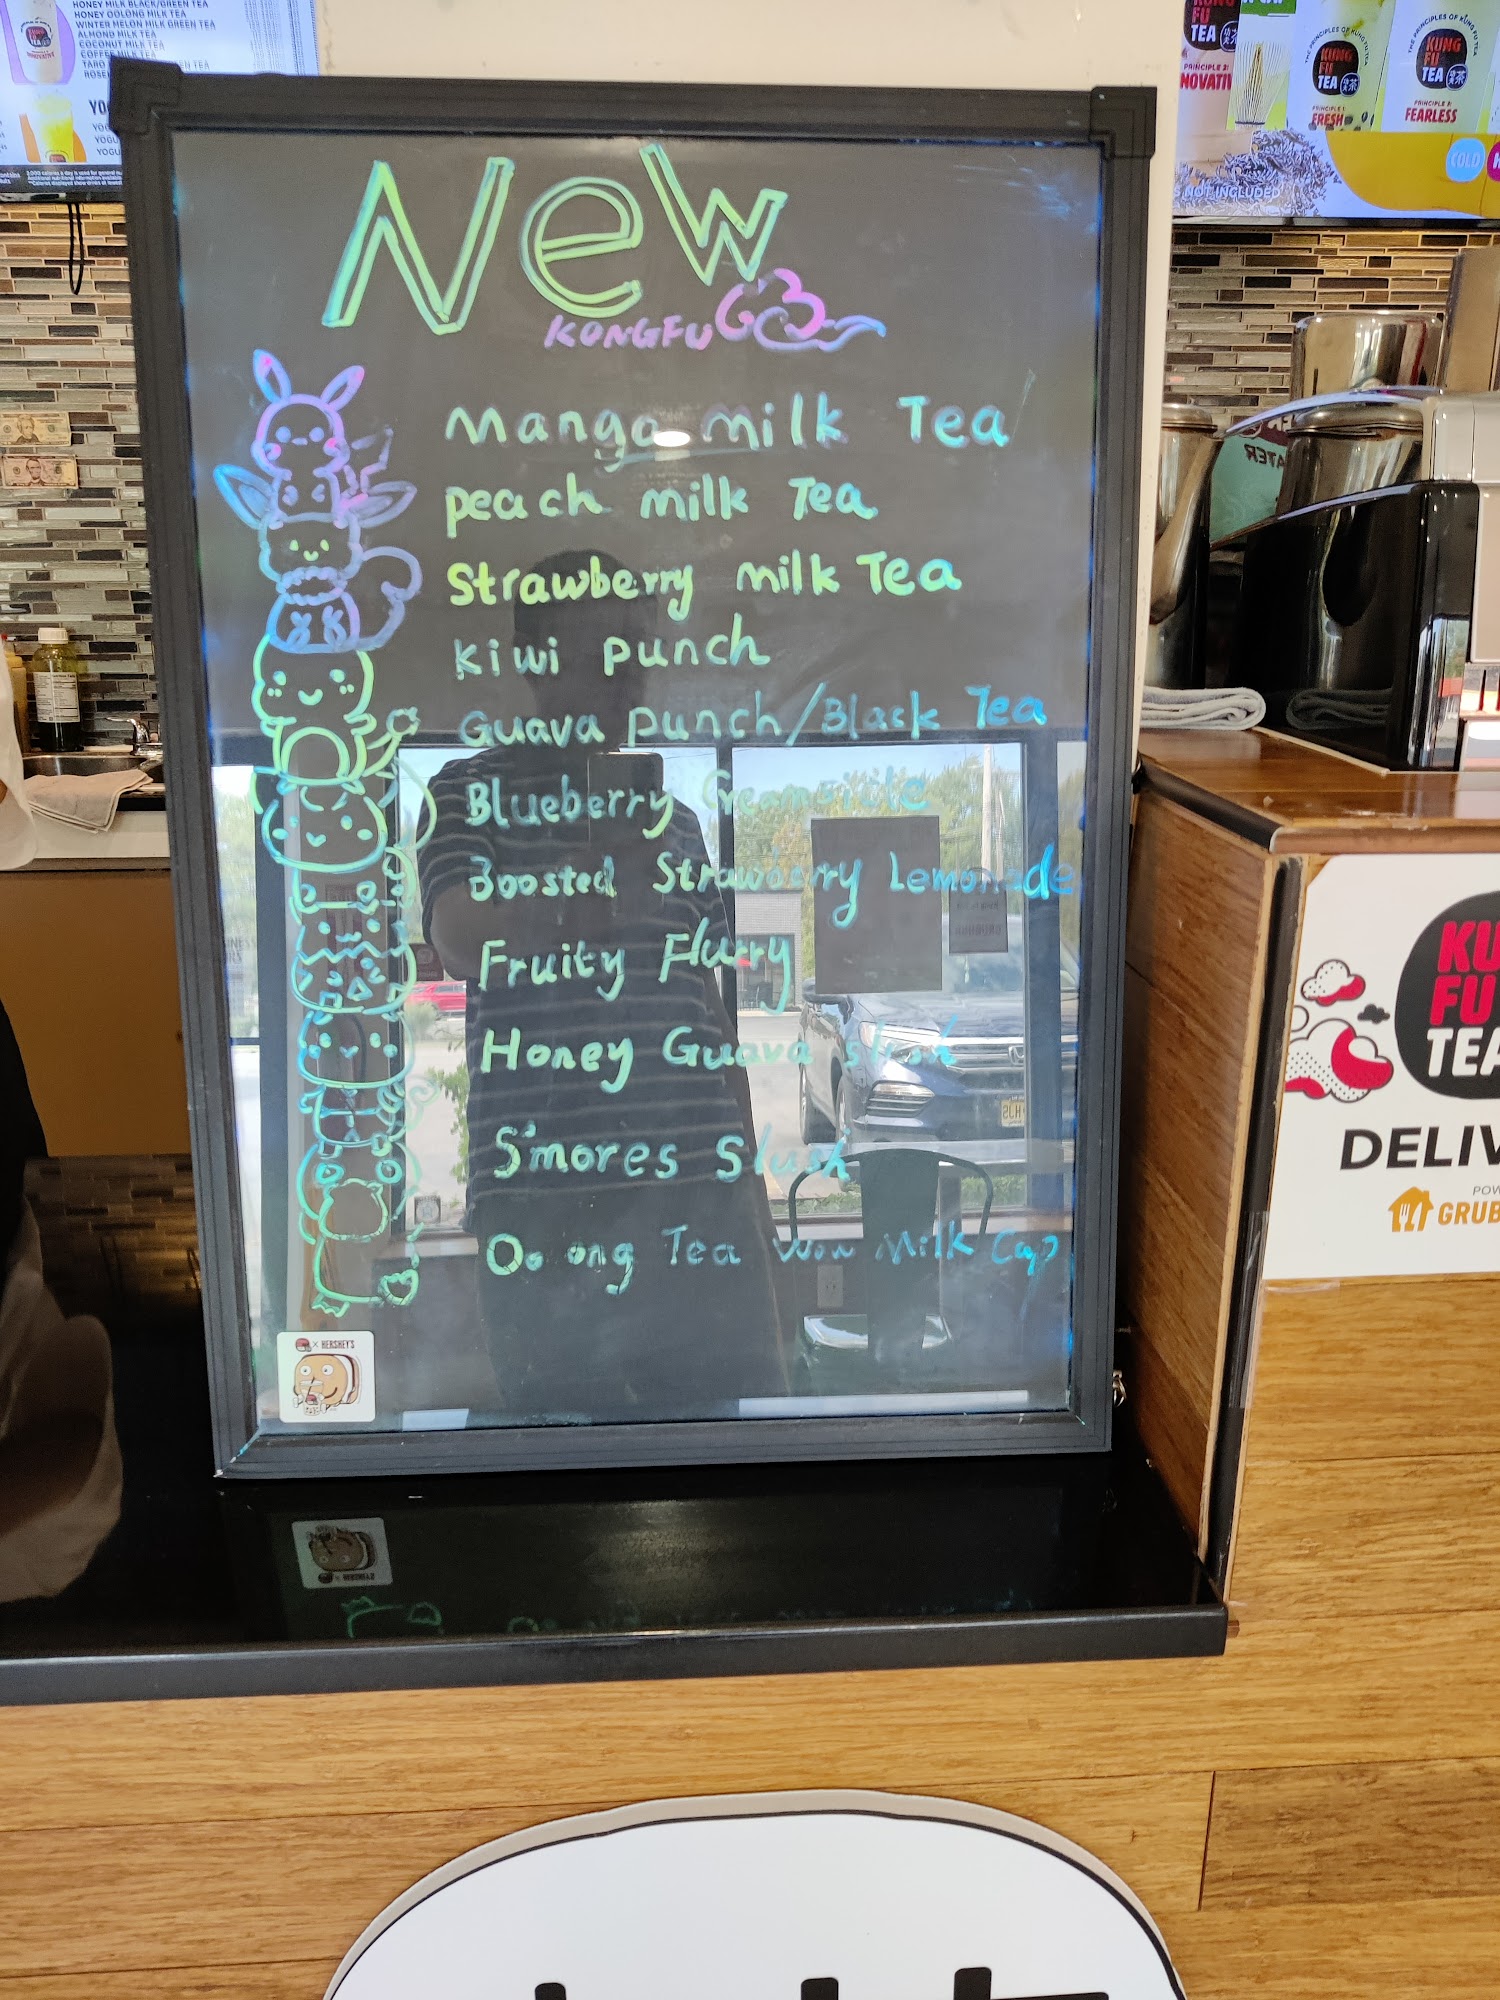 HONEY MILK BLACK/GREEN TEA
HONEY OOLONG MILK TEA
WINTER MELON MILK GREEN TEA
ALMOND MILK TEA
COCONUT MILK TEA
COFFEE MILK TEA
TARO
KUNG
FU
TEA
PRINCIPLE 1:
FRESH
KUNG
FU
TEA
FEARLESS
THE PRINCIPLES OF KUNG FU TEA
COLD
NOT INCLUDED
New
KONGFU
Mango milk Tea
peach milk Tea
Strawberry milk Tea
kiwi punch
Guava punch/Black Tea
Blueberry Creamsicle
Boosted Strawberry Lemonade
Fruity Flurry
Honey Guava slush
S'mores Slush
Oo ong Tea Wow Milk Cap
× HERSHEY'S
KU
FU
TEA
DELIV
GRUB